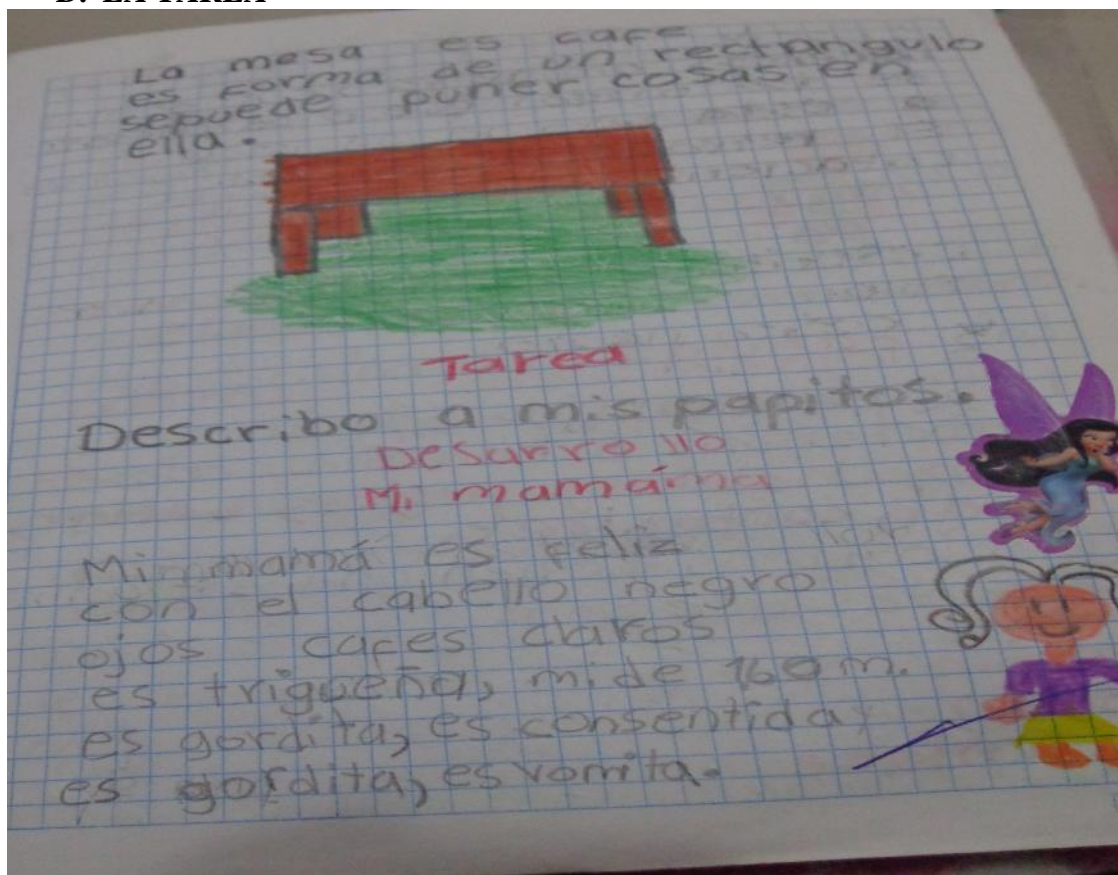 La mesa es cafe
es forma de un rectangulo
sepuede puner cosas en
ella.
Tarea
Describo a mis papitos.
Desarrollo
Mi mamá
Mi mamá es feliz
con el cabello negro
ojos cafes claros
es trigueña, mide 160 m.
es gordita, es consentida
es gordita, es